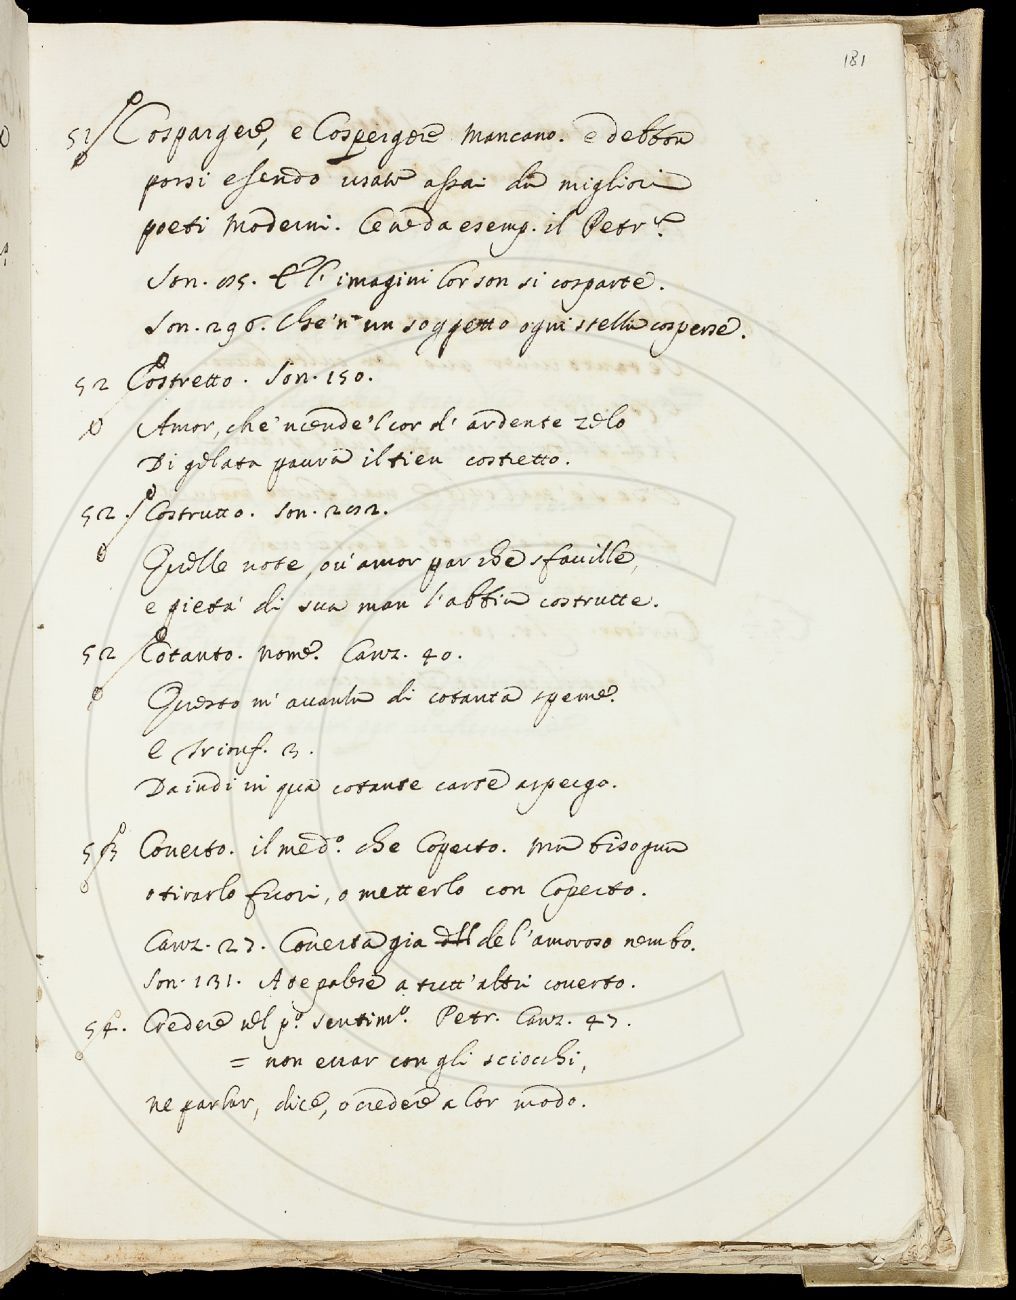 181
51 Cospargere, e Cospergere mancano. e debbon
porsi essendo usate assai da migliori
poeti moderni. Ce ne da esemp. il Petr.ca
Son. E l' imagini lor son si cosparte.
Son. 296. Che 'n un soggetto ogni stella cosperse.
52 Costretto. Son. 150.
Amor, che 'ncende 'l cor d' ardente zelo
Di gelata paura il tien costretto.
52. Costrutto. Son. 202.
Quelle note, ou' amor par che sfauille,
e pieta' di sua man l' abbia costrutte.
52 Cotanto. nome. Canz. 40.
Questo m' auanza di cotanta speme.
E Trionf. 3.
Da indi in qua cotante carte aspergo.
53 Couerto. il med.o che Coperto. Ma bisogna
o tirarlo fuori, o metterlo con Coperto.
Canz. 27. Couerta gia del l' amoroso nembo.
Son. 131. A te palese a tutt' altri couerto.
54. Credere nel p.o sentim.o. Petr. Canz. 47.
= non errar con gli sciocchi,
ne parlar, dice, o credere a lor modo.